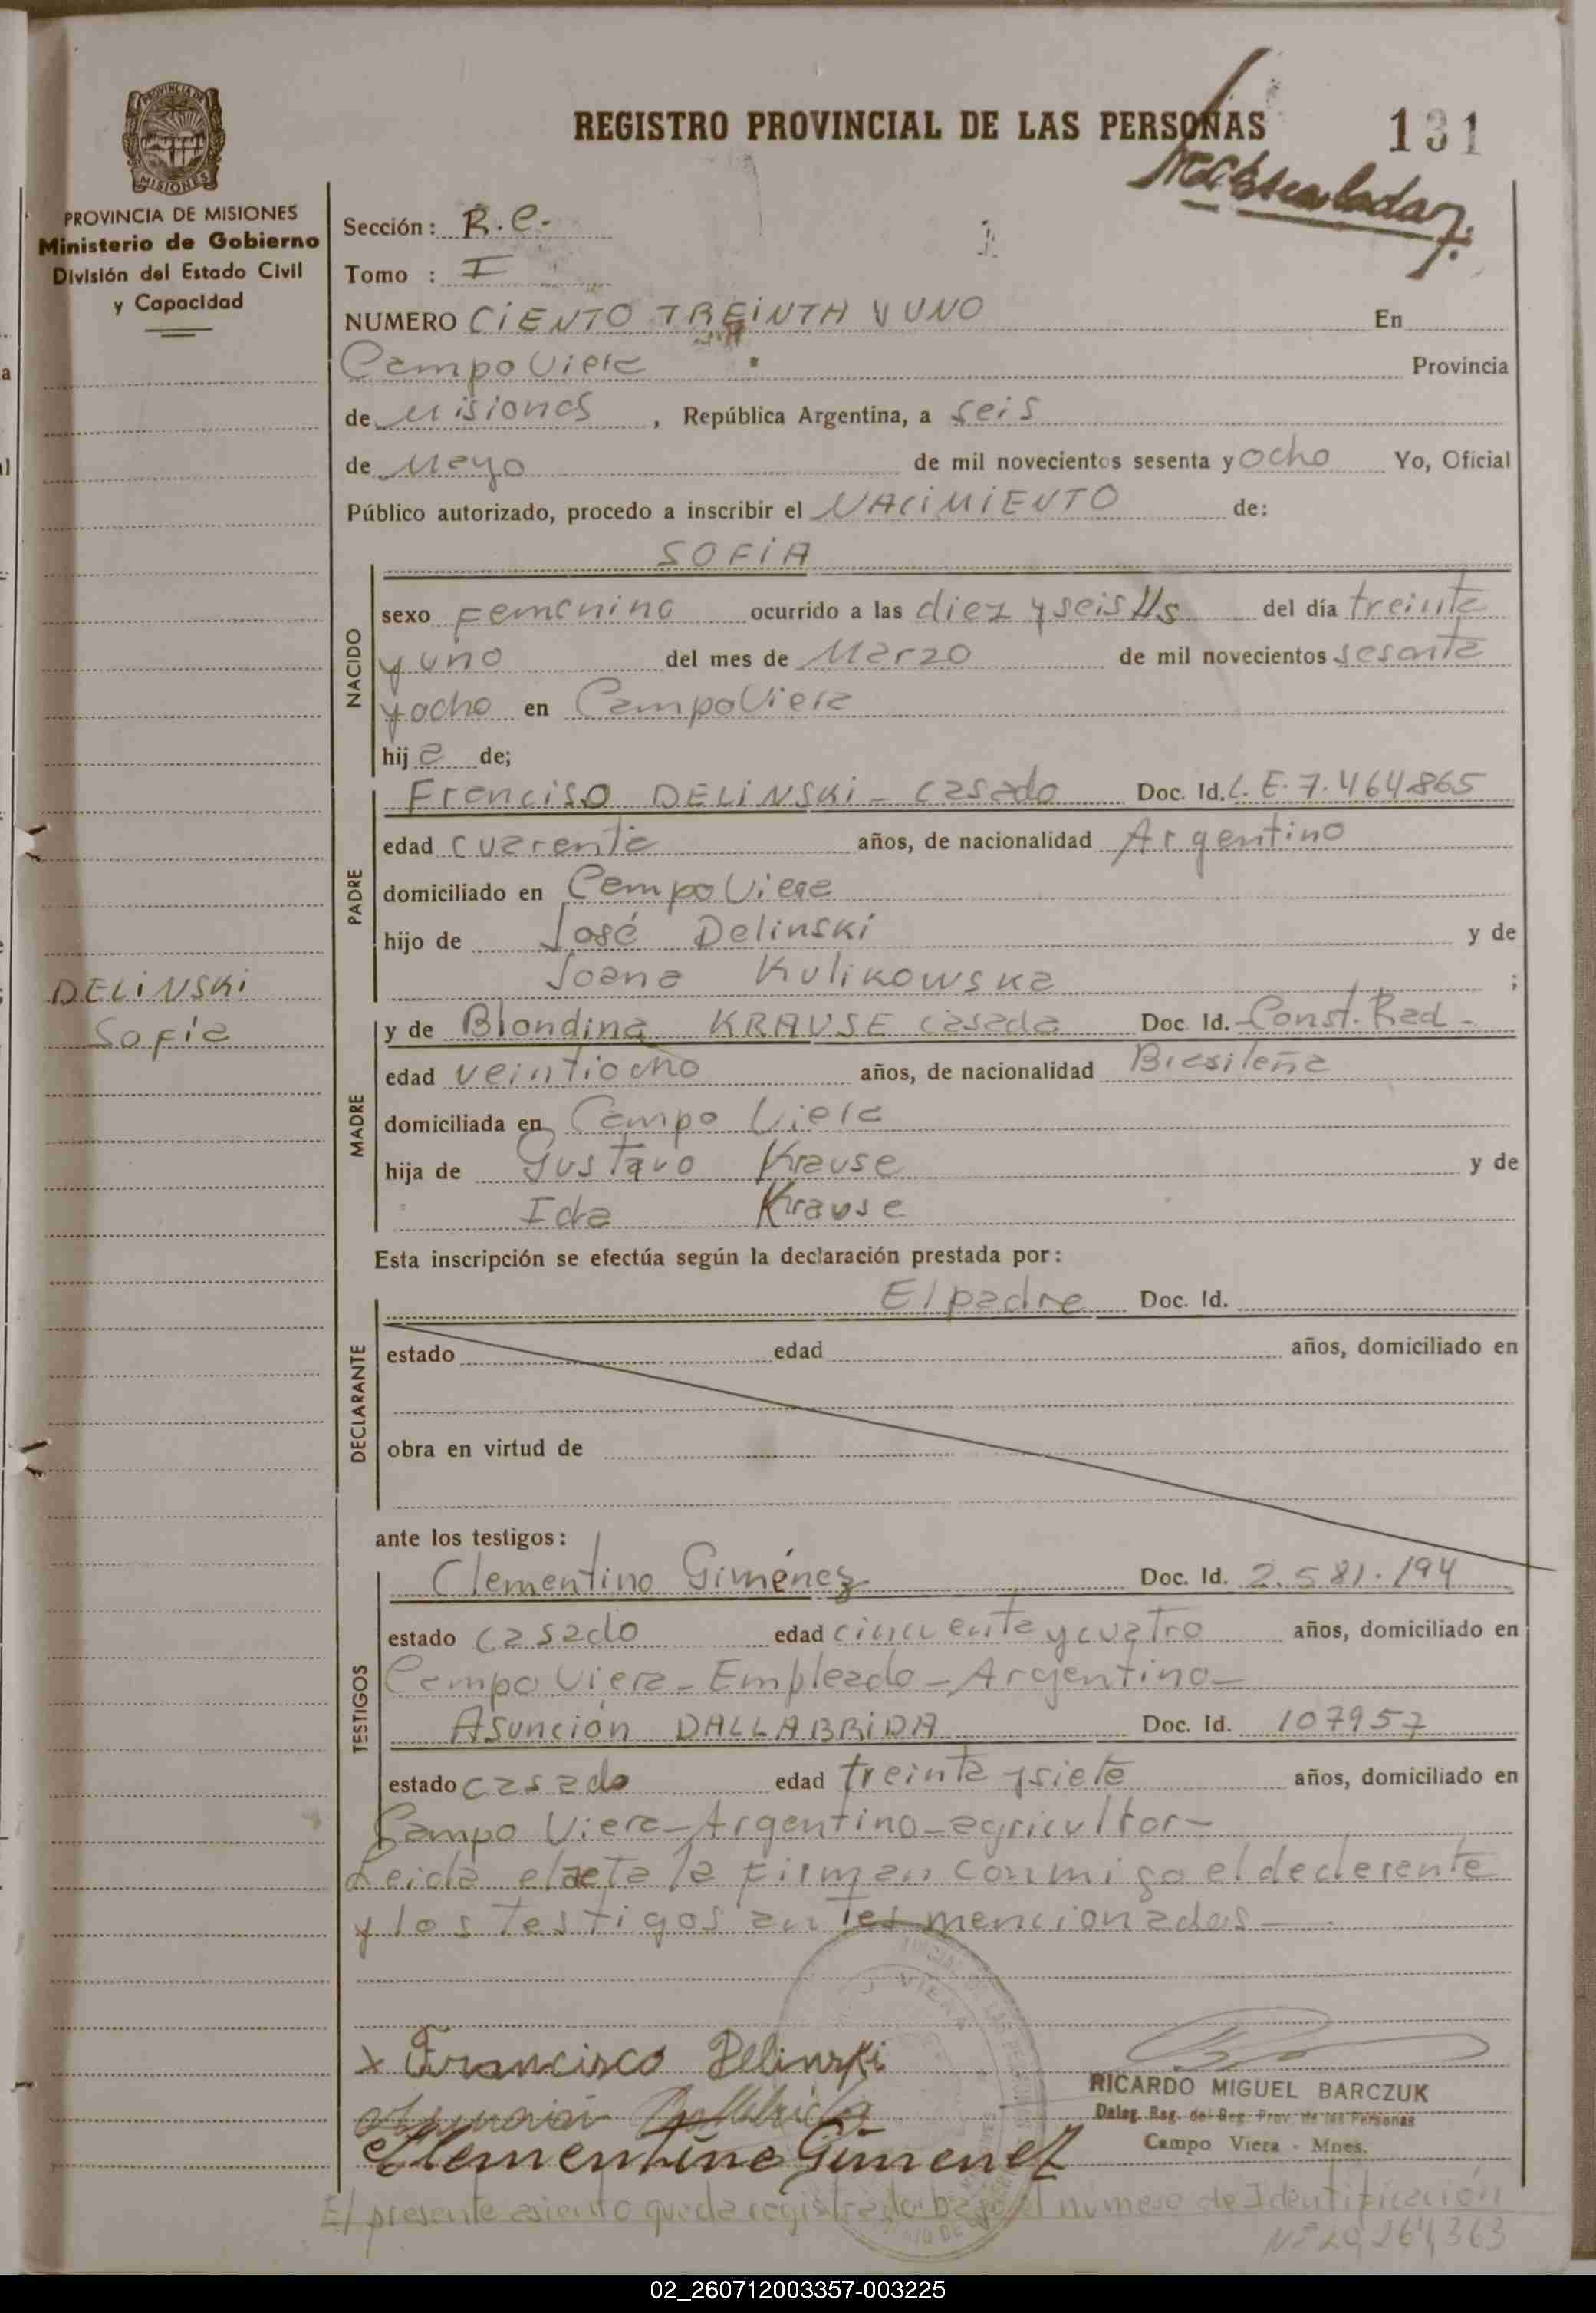 REGISTRO PROVINCIAL DE LAS PERSONAS 131
PROVINCIA DE
MISIONES
PROVINCIA DE MISIONES
Ministerio de Gobierno
División del Estado Civil
y Capacidad
Sección: R.C.
Tomo : I
NUMERO CIENTO TREINTA Y UNO En
Campo Viera Provincia
de Misiones , República Argentina, a seis
de Mayo de mil novecientos sesenta y ocho Yo, Oficial
Público autorizado, procedo a inscribir el NACIMIENTO de:
SOFIA
NACIDO
sexo Femenino ocurrido a las diez y seis Hs del día treinta
y uno del mes de Marzo de mil novecientos sesenta
y ocho en Campo Viera
hij a de;
PADRE
Franciso DELINSKI - casado Doc. Id. L.E. 7.464.865
edad cuarenta años, de nacionalidad Argentino
domiciliado en Campo Viera
hijo de José Delinski y de
Joana Kulikowska ;
DELINSKI
Sofía
MADRE
y de Blondina KRAUSE casada Doc Id. Const. Rad -
edad veintiocho años, de nacionalidad Brasileña
domiciliada en Campo Viera
hija de Gustavo Krause y de
Ida Krause
Esta inscripción se efectúa según la declaración prestada por:
El padre Doc. Id.
DECLARANTE
estado edad años, domiciliado en
obra en virtud de
ante los testigos:
TESTIGOS
Clementino Giménez Doc. Id. 2.581.194
estado casado edad cincuenta y cuatro años, domiciliado en
Campo Viera - Empleado - Argentino -
Asunción DALLABRIDA Doc. Id. 107957
estado casado edad treinta y siete años, domiciliado en
Campo Viera - Argentino - agricultor -
Leida el acta la firman conmigo el declarente
y los testigos antes mencionados -
x Francisco Delinski
Clementino Gimenez
RICARDO MIGUEL BARCZUK
Deleg. Reg. del Reg. Prov. de las Personas
Campo Viera - Mnes.
El presente asiento queda registrado bajo el número de Identificación
Nº 20,264,363
02_260712003357-003225